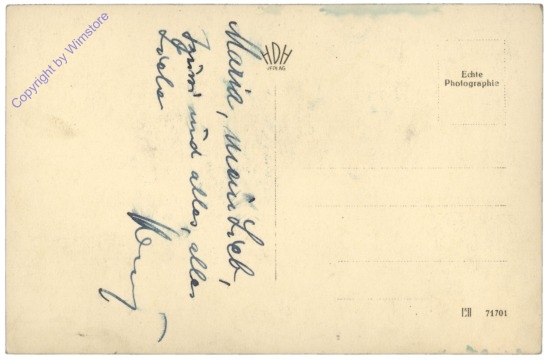 Copyright by Wimstore
Maria, mein Lieb,
und alles, alles
Liebe
HDH
VERLAG
Echte
Photographie
71701